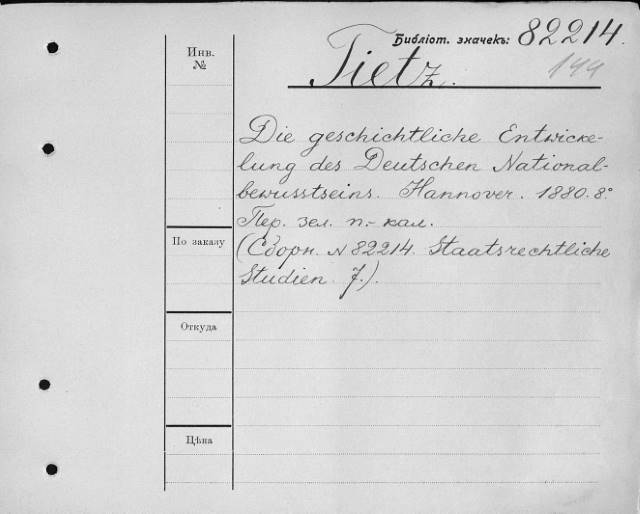 Библіот. значекъ: 82214.
144
Tietz.
Инв. №
Die geschichtliche Entwicke-
lung des Deutschen National-
bewusstseins. Hannover. 1880. 8°
Пер. зел. п.-кал.
(Сборн. N 82214. Staatsrechtliche
Studien. 7.).
По заказу
Откуда
Цѣна